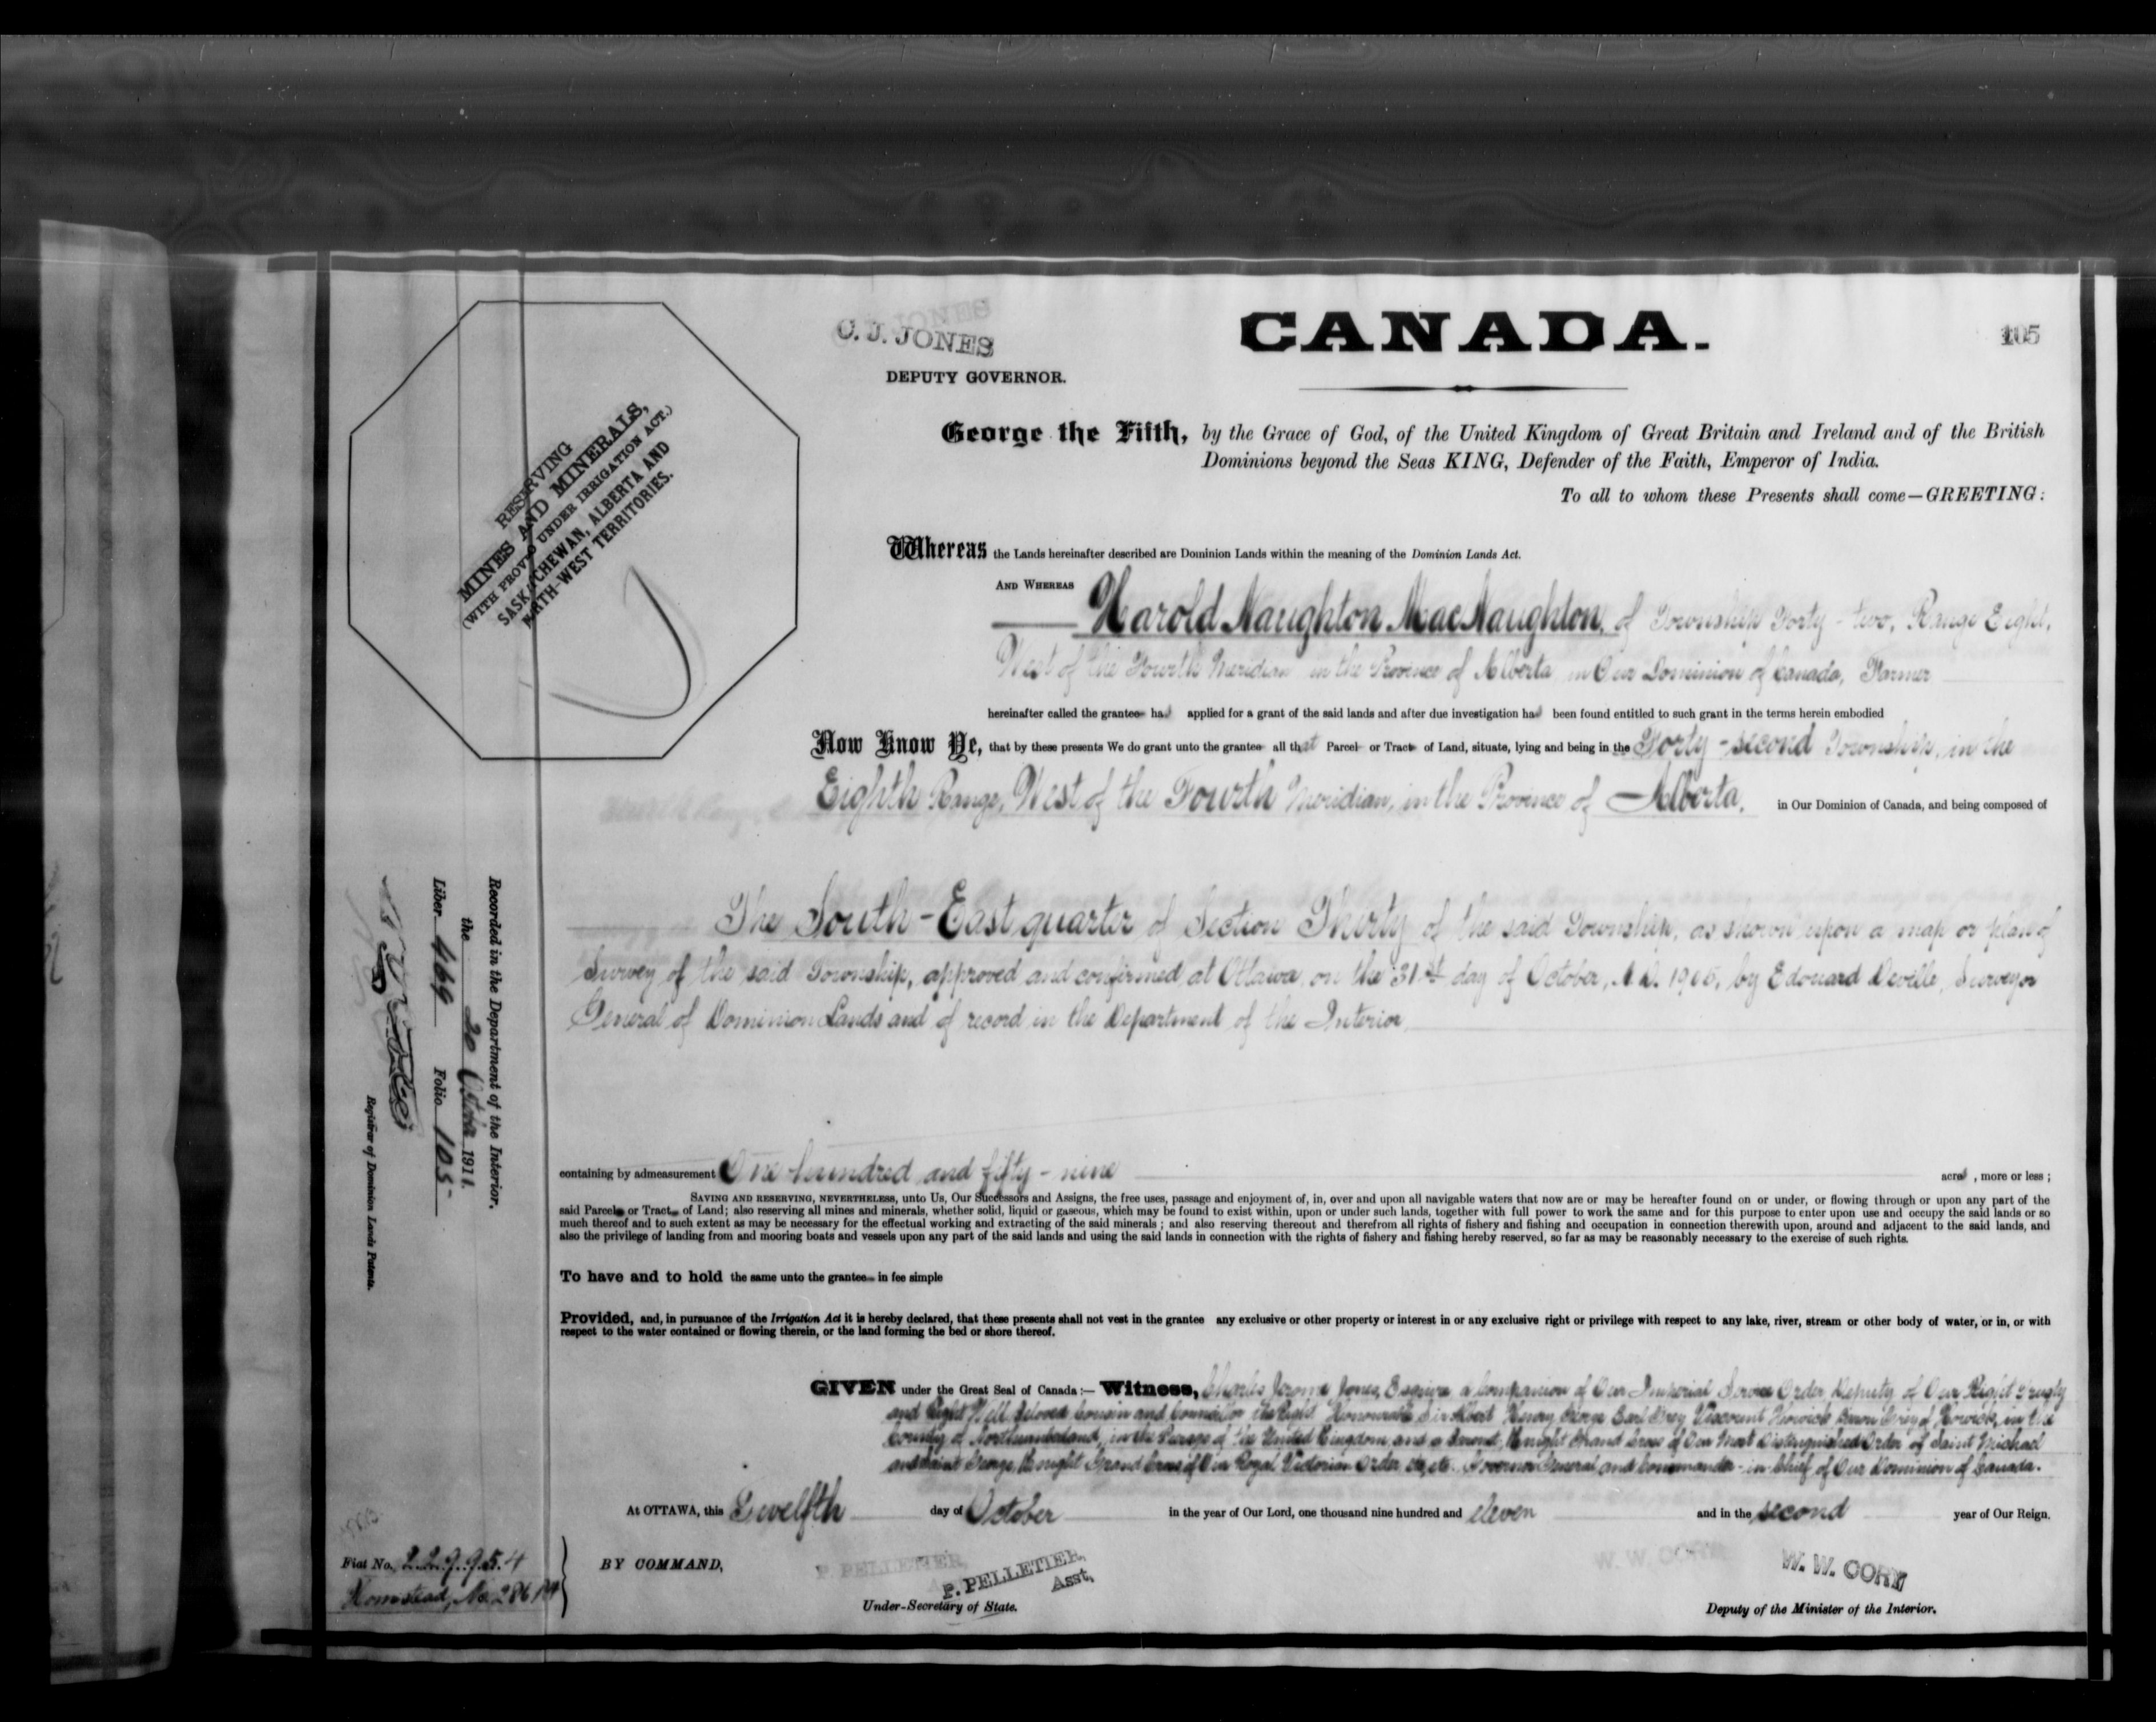 C. J. JONES
DEPUTY GOVERNOR.
CANADA.
105
RESERVING
MINES AND MINERALS,
(WITH PROVISO UNDER IRRIGATION ACT.)
SASKATCHEWAN, ALBERTA AND
NORTH-WEST TERRITORIES.
George the Fifth, by the Grace of God, of the United Kingdom of Great Britain and Ireland and of the British
Dominions beyond the Seas KING, Defender of the Faith, Emperor of India.
To all to whom these Presents shall come—GREETING:
Whereas the Lands hereinafter described are Dominion Lands within the meaning of the Dominion Lands Act.
AND WHEREAS
Harold Naughton MacNaughton, of Township Forty-two, Range Eight,
West of the Fourth Meridian in the Province of Alberta in Our Dominion of Canada, Farmer
hereinafter called the grantee has applied for a grant of the said lands and after due investigation has been found entitled to such grant in the terms herein embodied
Now Know Ye, that by these presents We do grant unto the grantee all that Parcel or Tract of Land, situate, lying and being in the Forty-second Township, in the
Eighth Range, West of the Fourth Meridian, in the Province of Alberta, in Our Dominion of Canada, and being composed of
The South-East quarter of Section Thirty of the said Township, as shown upon a map or plan of
Survey of the said Township, approved and confirmed at Ottawa, on the 31st day of October, A.D. by Edouard Deville, Surveyor
General of Dominion Lands and of record in the Department of the Interior,
containing by admeasurement One hundred and fifty-nine acres, more or less;
SAVING AND RESERVING, NEVERTHELESS, unto Us, Our Successors and Assigns, the free uses, passage and enjoyment of, in, over and upon all navigable waters that now are or may be hereafter found on or under, or flowing through or upon any part of the
said Parcel or Tract of Land; also reserving all mines and minerals, whether solid, liquid or gaseous, which may be found to exist within, upon or under such lands, together with full power to work the same and for this purpose to enter upon use and occupy the said lands or so
much thereof and to such extent as may be necessary for the effectual working and extracting of the said minerals; and also reserving thereout and therefrom all rights of fishery and fishing and occupation in connection therewith upon, around and adjacent to the said lands, and
also the privilege of landing from and mooring boats and vessels upon any part of the said lands and using the said lands in connection with the rights of fishery and fishing hereby reserved, so far as may be reasonably necessary to the exercise of such rights.
To have and to hold the same unto the grantee in fee simple
Provided, and, in pursuance of the Irrigation Act it is hereby declared, that these presents shall not vest in the grantee any exclusive or other property or interest in or any exclusive right or privilege with respect to any lake, river, stream or other body of water, or in, or with
respect to the water contained or flowing therein, or the land forming the bed or shore thereof.
GIVEN under the Great Seal of Canada:— Witness, Charles Jerome Jones, Esquire a Companion of Our Imperial Service Order, Deputy of Our Right Trusty
and Right Well Beloved Cousin and Councillor the Right Honourable Sir Albert Henry George Earl Grey Viscount Howick Baron Grey of Howick, in the
County of Northumberland, in the Peerage of the United Kingdom and a Baronet, Knight Grand Cross of Our Most Distinguished Order of Saint Michael
and Saint George, Knight Grand Cross of Our Royal Victorian Order etc, etc. Governor General and Commander-in-Chief of Our Dominion of Canada.
At OTTAWA, this Twelfth day of October in the year of Our Lord, one thousand nine hundred and eleven and in the second year of Our Reign.
BY COMMAND,
P. PELLETIER,
Asst.
Under-Secretary of State.
W. W. CORY
Deputy of the Minister of the Interior.
Recorded in the Department of the Interior.
the 20 October 1911.
Liber 469 Folio 105
Registrar of Dominion Lands Patents.
Fiat No. 229954
Homestead, No.